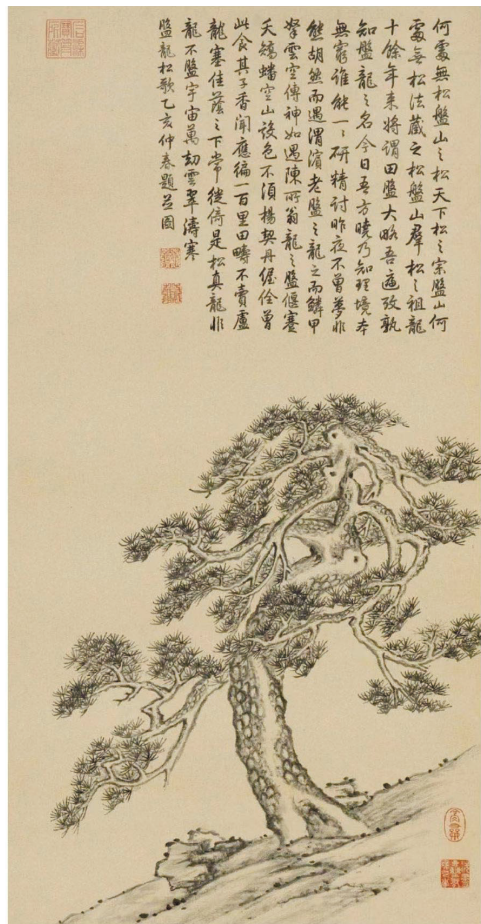 何處無松盤山之松天下松之宗盤山何
處無松法藏之松盤山羣松之祖龍
十餘年來將謂田盤大略吾遍攷孰
知盤龍之名今日吾方曉乃知理境本
無窮誰能一一研精討昨夜不曾夢非
熊胡然而遇渭濱老盤之龍之而鱗甲
拏雲空傳神如遇陳所翁龍之盤偃蹇
夭矯蟠空山設色不須楊契丹偓佺曾
此食其子香聞應徧一百里田疇不賣盧
龍塞佳蔭之下常徙倚是松真龍非
龍不盤宇宙萬劫雲翠濤寒
盤龍松歌乙亥仲春題並圖